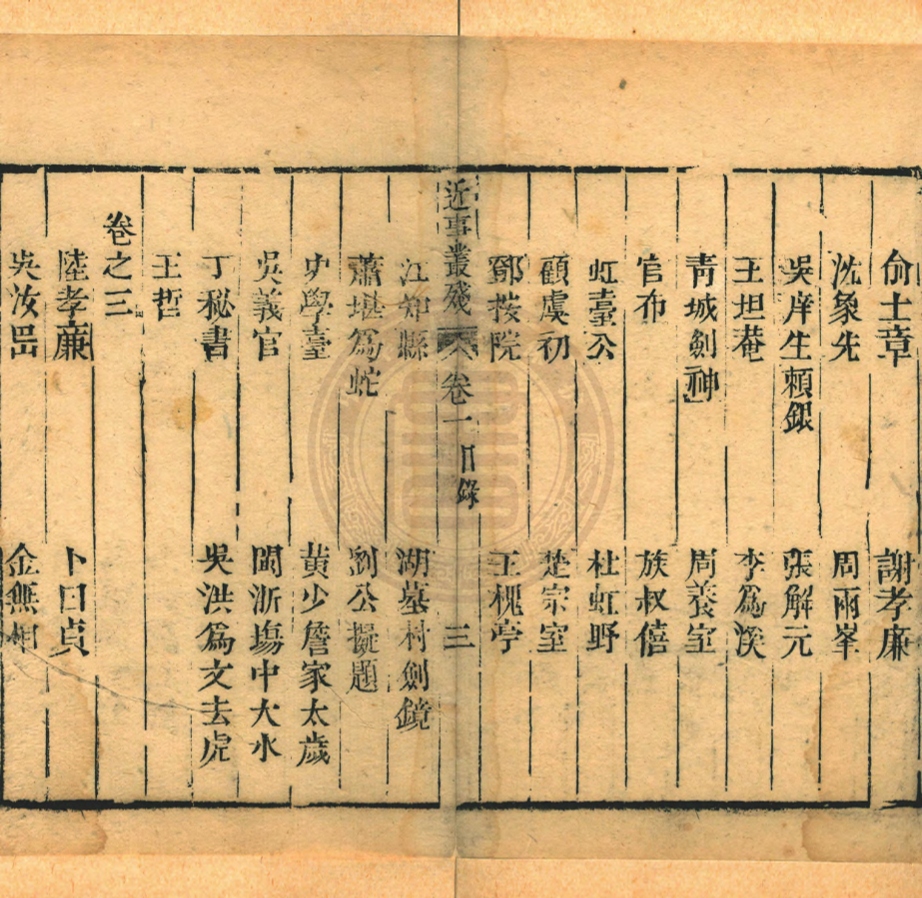 俞士章　謝孝廉
沈象先　周兩峯
吳庠生賴銀　張解元
王坦菴　李爲溪
靑城劍神　周養室
官布　族叔僖
虹臺公　杜虹野
顧虞初　楚宗室
鄧按院　王槐亭
近事叢殘　卷一目錄　三
江知縣　湖墓村劍鏡
蕭堪爲蛇　劉公擬題
史學臺　黃少詹家太歲
吳義官　閩浙塲中大水
丁秘書　吳洪爲文去虎
王哲
卷之三
陸孝廉　卜日貞
吳汝　金無相